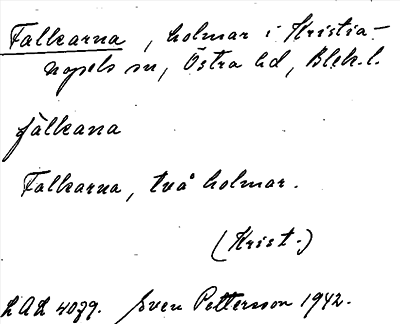 Falkarna, holmar i Kristia-
nopels sn, Östra hd, Blek. l.
fälkana
Falkarna, två holmar.
(Krist.)
LAL 4079. Sven Pettersson 1942.